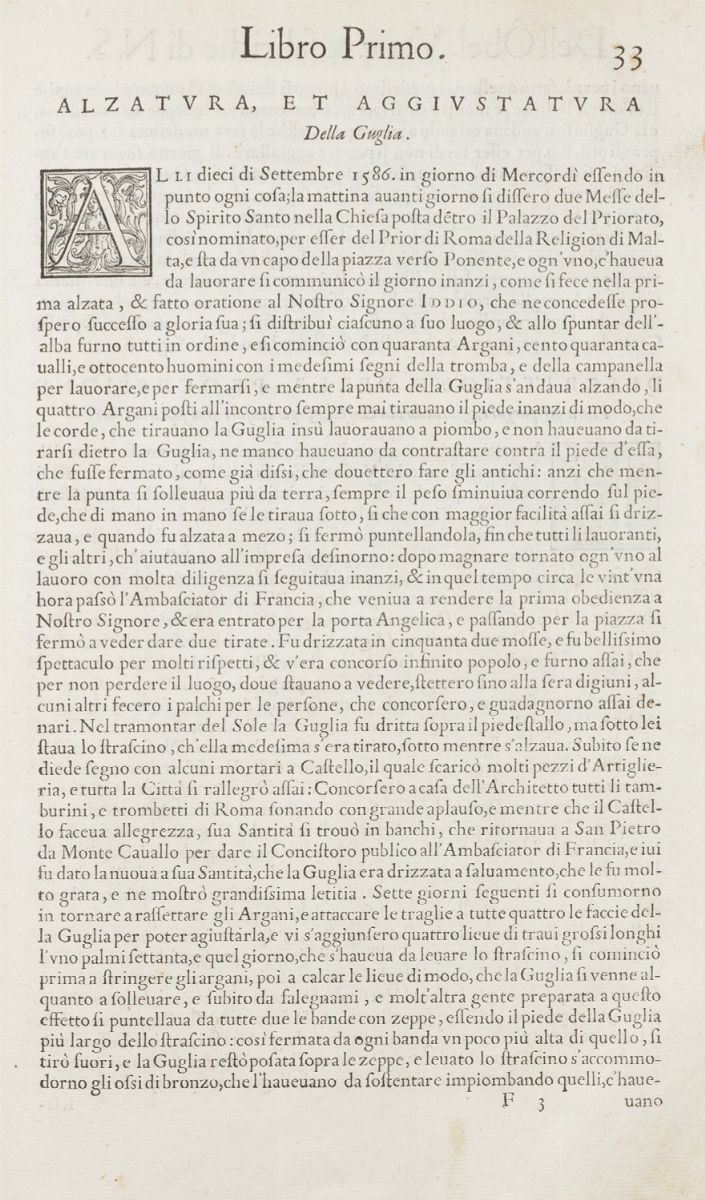 Libro Primo. 33
ALZATVRA, ET AGGIVSTATVRA
Della Guglia.
ALLI dieci di Settembre 1586. in giorno di Mercordì eſſendo in
punto ogni coſa; la mattina auanti giorno ſi diſſero due Meſſe del-
lo Spirito Santo nella Chieſa poſta dẽtro il Palazzo del Priorato,
così nominato, per eſſer del Prior di Roma della Religion di Mal-
ta, e ſta da vn capo della piazza verſo Ponente, e ogn'vno, c'haueua
da lauorare ſi communicò il giorno inanzi, come ſi fece nella pri-
ma alzata, & fatto oratione al Noſtro Signore IDDIO, che ne concedeſſe pro-
ſpero ſucceſſo a gloria ſua; ſi diſtribuì ciaſcuno a ſuo luogo, & allo ſpuntar dell'-
alba furno tutti in ordine, e ſi cominciò con quaranta Argani, cento quaranta ca-
ualli, e ottocento huomini con i medeſimi ſegni della tromba, e della campanella
per lauorare, e per fermarſi, e mentre la punta della Guglia s'andaua alzando, li
quattro Argani poſti all'incontro ſempre mai tirauano il piede inanzi di modo, che
le corde, che tirauano la Guglia insù lauorauano a piombo, e non haueuano da ti-
rarſi dietro la Guglia, ne manco haueuano da contraſtare contra il piede d'eſſa,
che fuſſe fermato, come già diſsi, che douettero fare gli antichi: anzi che men-
tre la punta ſi ſolleuaua più da terra, ſempre il peſo ſminuiua correndo ſul pie-
de, che di mano in mano ſe le tiraua ſotto, ſi che con maggior facilità aſſai ſi driz-
zaua, e quando fu alzata a mezo; ſi fermò puntellandola, fin che tutti li lauoranti,
e gli altri, ch'aiutauano all'impreſa deſinorno: dopo magnare tornato ogn'vno al
lauoro con molta diligenza ſi ſeguitaua inanzi, & in quel tempo circa le vint'vna
hora paſsò l'Ambaſciator di Francia, che veniua a rendere la prima obedienza a
Noſtro Signore, & era entrato per la porta Angelica, e paſſando per la piazza ſi
fermò a veder dare due tirate. Fu drizzata in cinquanta due moſſe, e fu belliſsimo
ſpettaculo per molti riſpetti, & v'era concorſo infinito popolo, e furno aſſai, che
per non perdere il luogo, doue ſtauano a vedere, ſtettero ſino alla ſera digiuni, al-
cuni altri fecero i palchi per le perſone, che concorſero, e guadagnorno aſſai de-
nari. Nel tramontar del Sole la Guglia fu dritta ſopra il piedeſtallo, ma ſotto lei
ſtaua lo ſtraſcino, ch'ella medeſima s'era tirato, ſotto mentre s'alzaua. Subito ſe ne
diede ſegno con alcuni mortari a Caſtello, il quale ſcaricò molti pezzi d'Artiglie-
ria, e tutta la Città ſi rallegrò aſſai: Concorſero a caſa dell'Architetto tutti li tam-
burini, e trombetti di Roma ſonando con grande aplauſo, e mentre che il Caſtel-
lo faceua allegrezza, ſua Santità ſi trouò in banchi, che ritornaua a San Pietro
da Monte Cauallo per dare il Conciſtoro publico all'Ambaſciator di Francia, e iui
fu dato la nuoua a ſua Santità, che la Guglia era drizzata a ſaluamento, che le fu mol-
to grata, e ne moſtrò grandiſsima letitia. Sette giorni ſeguenti ſi conſumorno
in tornare a raſſettare gli Argani, e attaccare le traglie a tutte quattro le faccie del-
la Guglia per poter agiuſtarla, e vi s'aggiunſero quattro lieue di traui groſsi longhi
l'vno palmi ſettanta, e quel giorno, che s'haueua da leuare lo ſtraſcino, ſi cominciò
prima a ſtringere gli argani, poi a calcar le lieue di modo, che la Guglia ſi venne al-
quanto a ſolleuare, e ſubito da falegnami, e molt'altra gente preparata a queſto
effetto ſi puntellaua da tutte due le bande con zeppe, eſſendo il piede della Guglia
più largo dello ſtraſcino: così fermata da ogni banda vn poco più alta di quello, ſi
tirò fuori, e la Guglia reſtò poſata ſopra le zeppe, e leuato lo ſtraſcino s'accommo-
dorno gli oſsi di bronzo, che l'haueuano da ſoſtentare impiombando quelli, c'haue-
F 3 uano